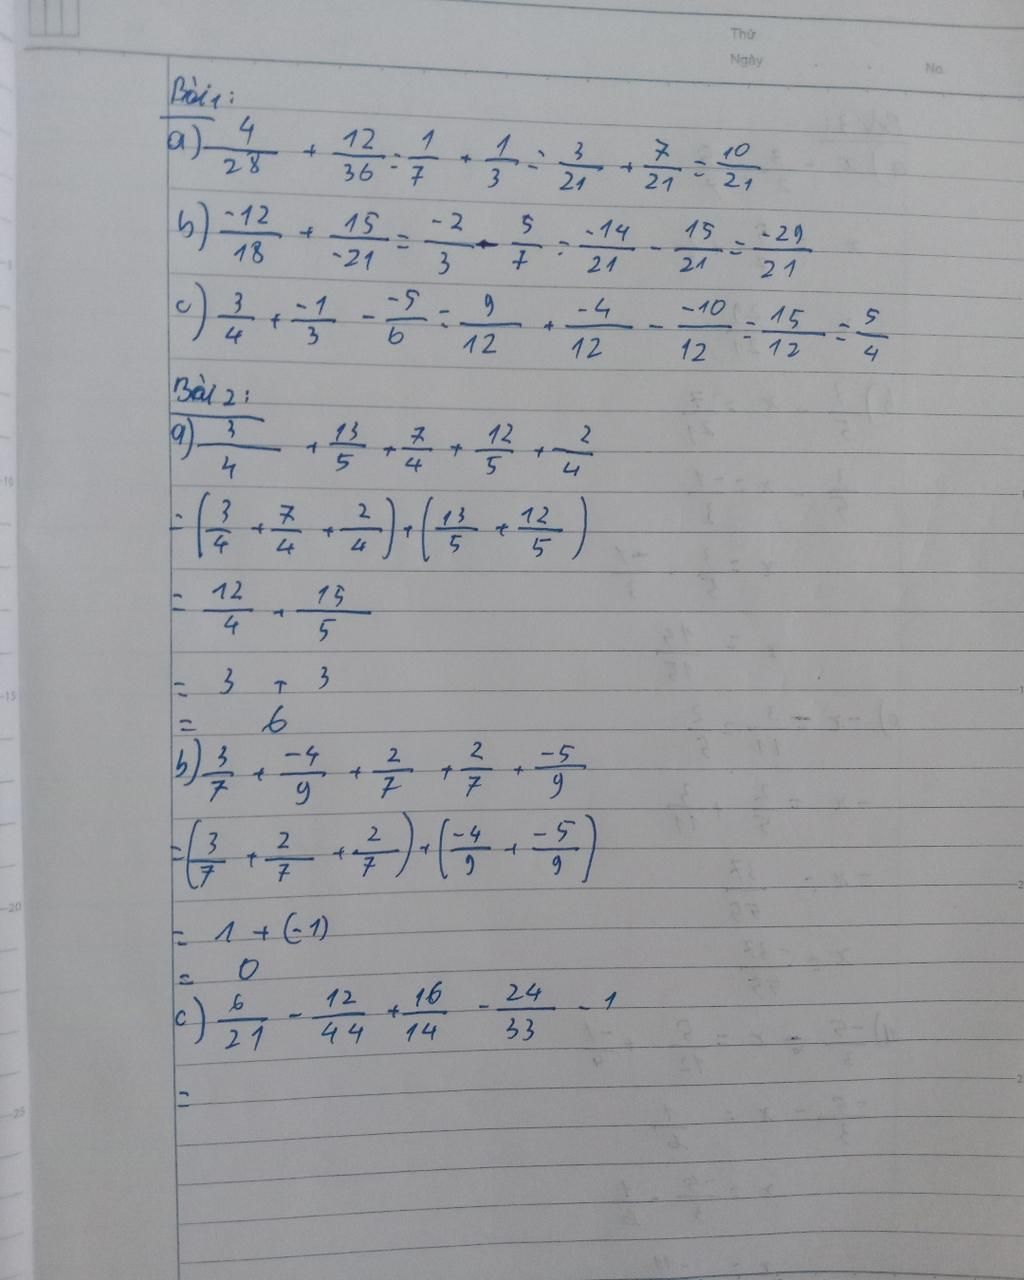 Thứ
Ngày
No.
Bài 1:
a) 4/28 + 12/36 = 1/7 + 1/3 = 3/21 + 7/21 = 10/21
b) -12/18 + 15/-21 = -2/3 - 5/7 = -14/21 - 15/21 = -29/21
c) 3/4 + -1/3 - -5/6 = 9/12 + -4/12 - -10/12 = 15/12 = 5/4
Bài 2:
a) 3/4 + 13/5 + 7/4 + 12/5 + 2/4
= (3/4 + 7/4 + 2/4) + (13/5 + 12/5)
= 12/4 + 15/5
= 3 + 3
= 6
b) 3/7 + -4/9 + 2/7 + 2/7 + -5/9
= (3/7 + 2/7 + 2/7) + (-4/9 + -5/9)
= 1 + (-1)
= 0
c) 6/21 - 12/44 + 16/14 - 24/33 - 1
=